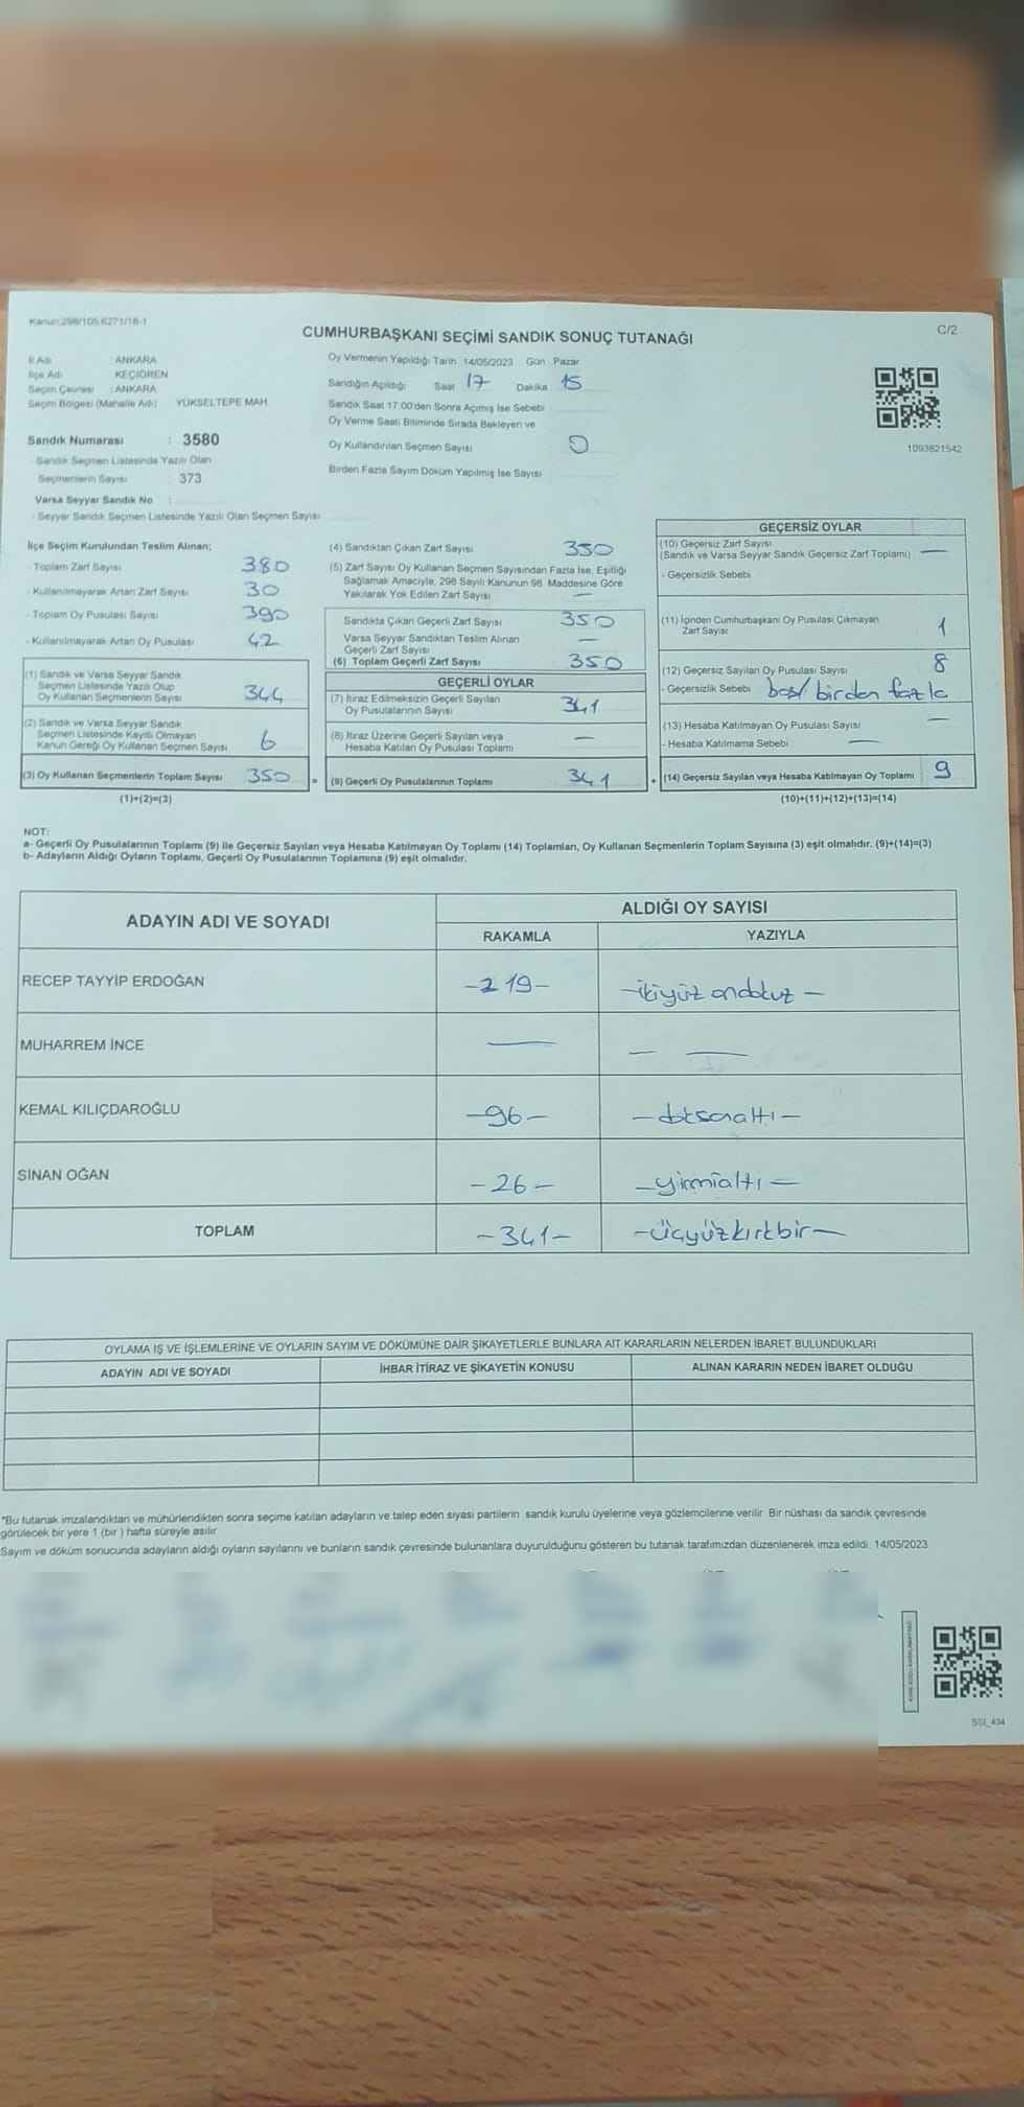 Kanun:298/105,6271/16-1
C/2
CUMHURBAŞKANI SEÇİMİ SANDIK SONUÇ TUTANAĞI
İl Adı : ANKARA
İlçe Adı : KEÇİÖREN
Seçim Çevresi : ANKARA
Seçim Bölgesi (Mahalle Adı) YÜKSELTEPE MAH.
Oy Vermenin Yapıldığı Tarih 14/05/2023 Gün Pazar
Sandığın Açıldığı Saat 17 Dakika 15
Sandık Saat 17.00'den Sonra Açımış İse Sebebi
Oy Verme Saati Bitiminde Sırada Bekleyen ve
Oy Kullandırılan Seçmen Sayısı 0
Birden Fazla Sayım Döküm Yapılmış İse Sayısı
1093621542
Sandık Numarası : 3580
Sandık Seçmen Listesinde Yazılı Olan
Seçmenlerin Sayısı : 373
Varsa Seyyar Sandık No :
- Seyyar Sandık Seçmen Listesinde Yazılı Olan Seçmen Sayısı
İlçe Seçim Kurulundan Teslim Alınan;
- Toplam Zarf Sayısı 380
- Kullanılmayarak Artan Zarf Sayısı 30
- Toplam Oy Pusulası Sayısı 390
- Kullanılmayarak Artan Oy Pusulası 42
(1) Sandık ve Varsa Seyyar Sandık
Seçmen Listesinde Yazılı Olup
Oy Kullanan Seçmenlerin Sayısı 344
(2) Sandık ve Varsa Seyyar Sandık
Seçmen Listesinde Kayıtlı Olmayan
Kanun Gereği Oy Kullanan Seçmen Sayısı 6
(3) Oy Kullanan Seçmenlerin Toplam Sayısı 350
(1)+(2)=(3)
(4) Sandıktan Çıkan Zarf Sayısı 350
(5) Zarf Sayısı Oy Kullanan Seçmen Sayısından Fazla İse, Eşitliği
Sağlamak Amacıyla, 298 Sayılı Kanunun 98. Maddesine Göre
Yakılarak Yok Edilen Zarf Sayısı —
Sandıkta Çıkan Geçerli Zarf Sayısı 350
Varsa Seyyar Sandıktan Teslim Alınan
Geçerli Zarf Sayısı —
(6) Toplam Geçerli Zarf Sayısı 350
GEÇERLİ OYLAR
(7) İtiraz Edilmeksizin Geçerli Sayılan
Oy Pusulalarının Sayısı 341
(8) İtiraz Üzerine Geçerli Sayılan veya
Hesaba Katılan Oy Pusulası Toplamı —
(9) Geçerli Oy Pusulalarının Toplamı 341
GEÇERSİZ OYLAR
(10) Geçersiz Zarf Sayısı
(Sandık ve Varsa Seyyar Sandık Geçersiz Zarf Toplamı) —
- Geçersizlik Sebebi
(11) İçinden Cumhurbaşkanı Oy Pusulası Çıkmayan
Zarf Sayısı 1
(12) Geçersiz Sayılan Oy Pusulası Sayısı 8
- Geçersizlik Sebebi boş/ birden fazla
(13) Hesaba Katılmayan Oy Pusulası Sayısı —
- Hesaba Katılmama Sebebi —
(14) Geçersiz Sayılan veya Hesaba Katılmayan Oy Toplamı 9
(10)+(11)+(12)+(13)=(14)
NOT:
a- Geçerli Oy Pusulalarının Toplamı (9) ile Geçersiz Sayılan veya Hesaba Katılmayan Oy Toplamı (14) Toplamları, Oy Kullanan Seçmenlerin Toplam Sayısına (3) eşit olmalıdır. (9)+(14)=(3)
b- Adayların Aldığı Oyların Toplamı, Geçerli Oy Pusulalarının Toplamına (9) eşit olmalıdır.
ADAYIN ADI VE SOYADI
ALDIĞI OY SAYISI
RAKAMLA YAZIYLA
RECEP TAYYİP ERDOĞAN -219- -ikiyüz ondokuz-
MUHARREM İNCE — — —
KEMAL KILIÇDAROĞLU -96- -doksanaltı-
SİNAN OĞAN -26- -yirmialtı-
TOPLAM -341- -üçyüzkırkbir-
OYLAMA İŞ VE İŞLEMLERİNE VE OYLARIN SAYIM VE DÖKÜMÜNE DAİR ŞİKAYETLERLE BUNLARA AİT KARARLARIN NELERDEN İBARET BULUNDUKLARI
ADAYIN ADI VE SOYADI İHBAR İTİRAZ VE ŞİKAYETİN KONUSU ALINAN KARARIN NEDEN İBARET OLDUĞU
*Bu tutanak imzalandıktan ve mühürlendikten sonra seçime katılan adayların ve talep eden siyasi partilerin sandık kurulu üyelerine veya gözlemcilerine verilir. Bir nüshası da sandık çevresinde
görülecek bir yere 1 (bir ) hafta süreyle asılır
Sayım ve döküm sonucunda adayların aldığı oyların sayılarını ve bunların sandık çevresinde bulunanlara duyurulduğunu gösteren bu tutanak tarafımızdan düzenlenerek imza edildi. 14/05/2023